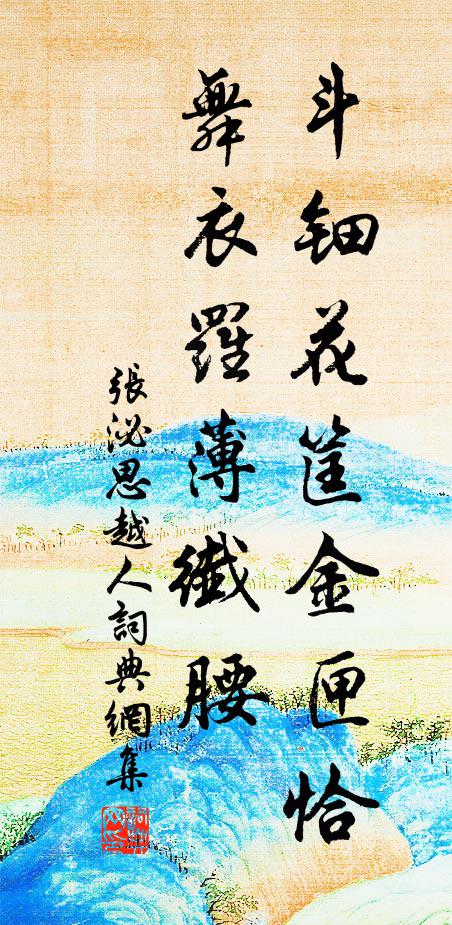 斗钿花筐金匣恰
舞衣羅薄纖腰
張泌思越人詞典網集